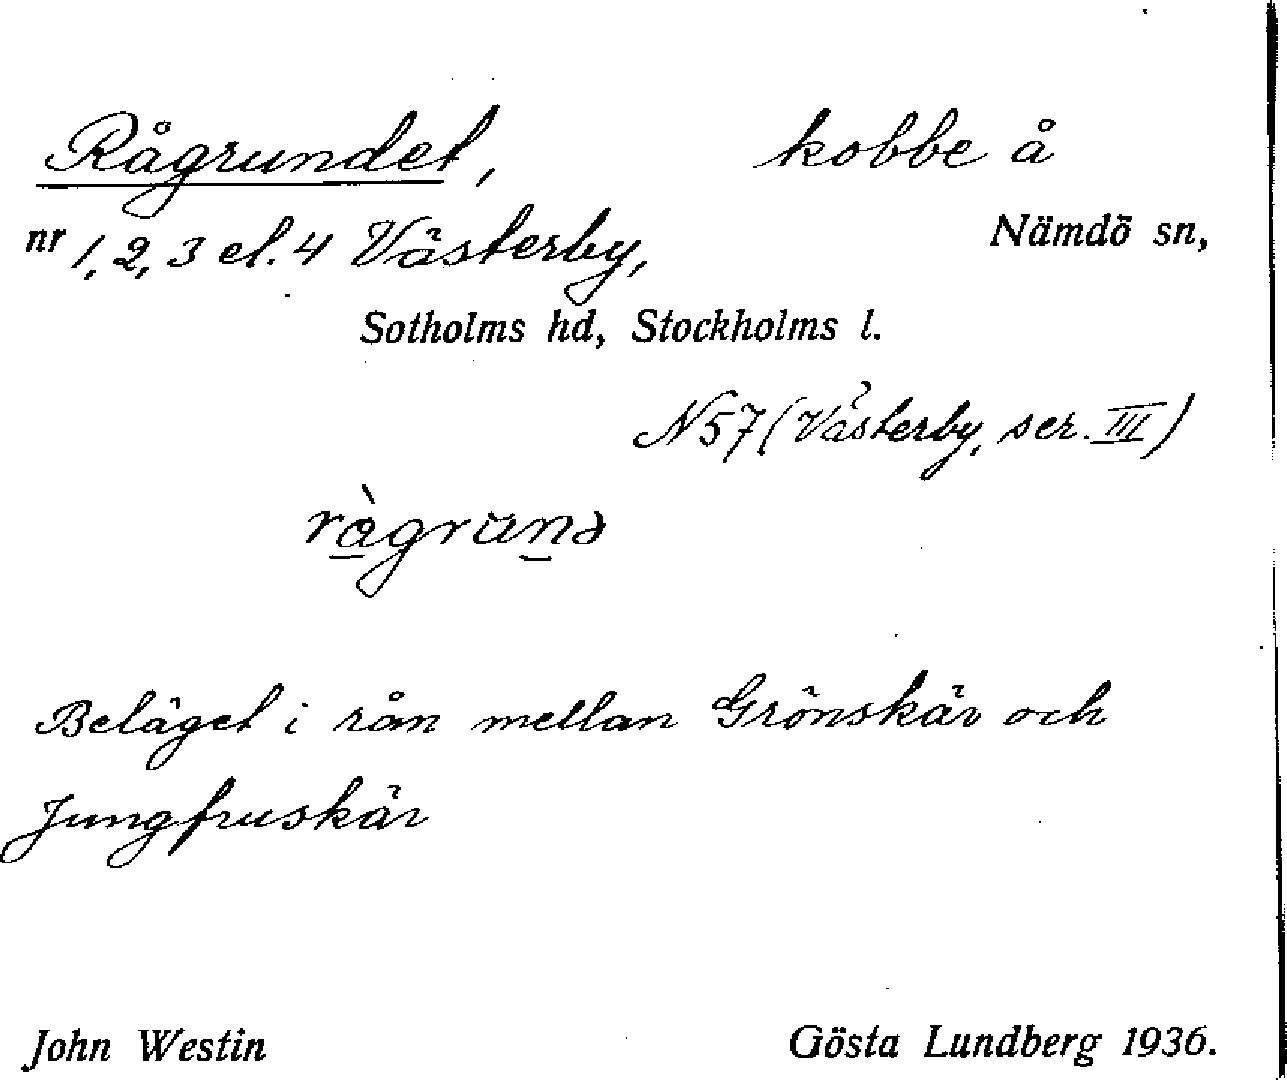 Rågrundet, kobbe å
nr 1, 2, 3 el. 4 Västerby, Nämdö sn,
Sotholms hd, Stockholms l.
N57 (Västerby, ser. III)
rågrund
Beläget i rån mellan Grönskär och
Jungfruskär
John Westin Gösta Lundberg 1936.